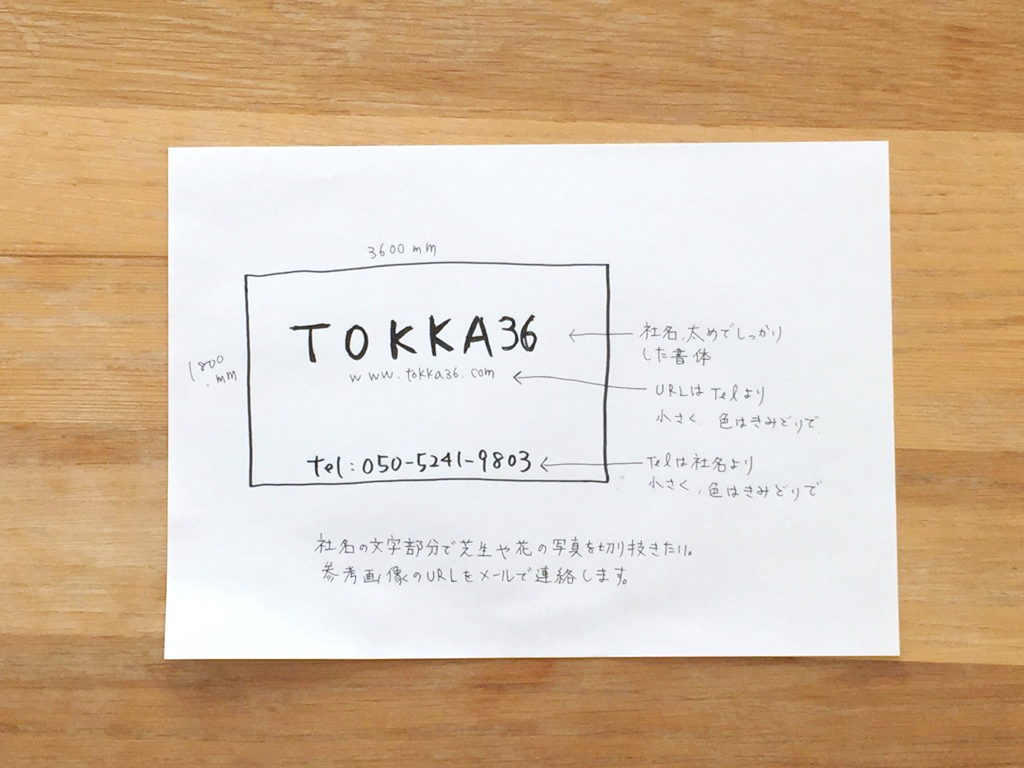 3600 mm
1800 mm
TOKKA36
www.tokka36.com
tel:050-5241-9803
社名、太めでしっかり
した書体
URLはTelより
小さく 色はきみどりで
Telは社名より
小さく、色はきみどりで
社名の文字部分で芝生や花の写真を切り抜きたい。
参考画像のURLをメールで連絡します。